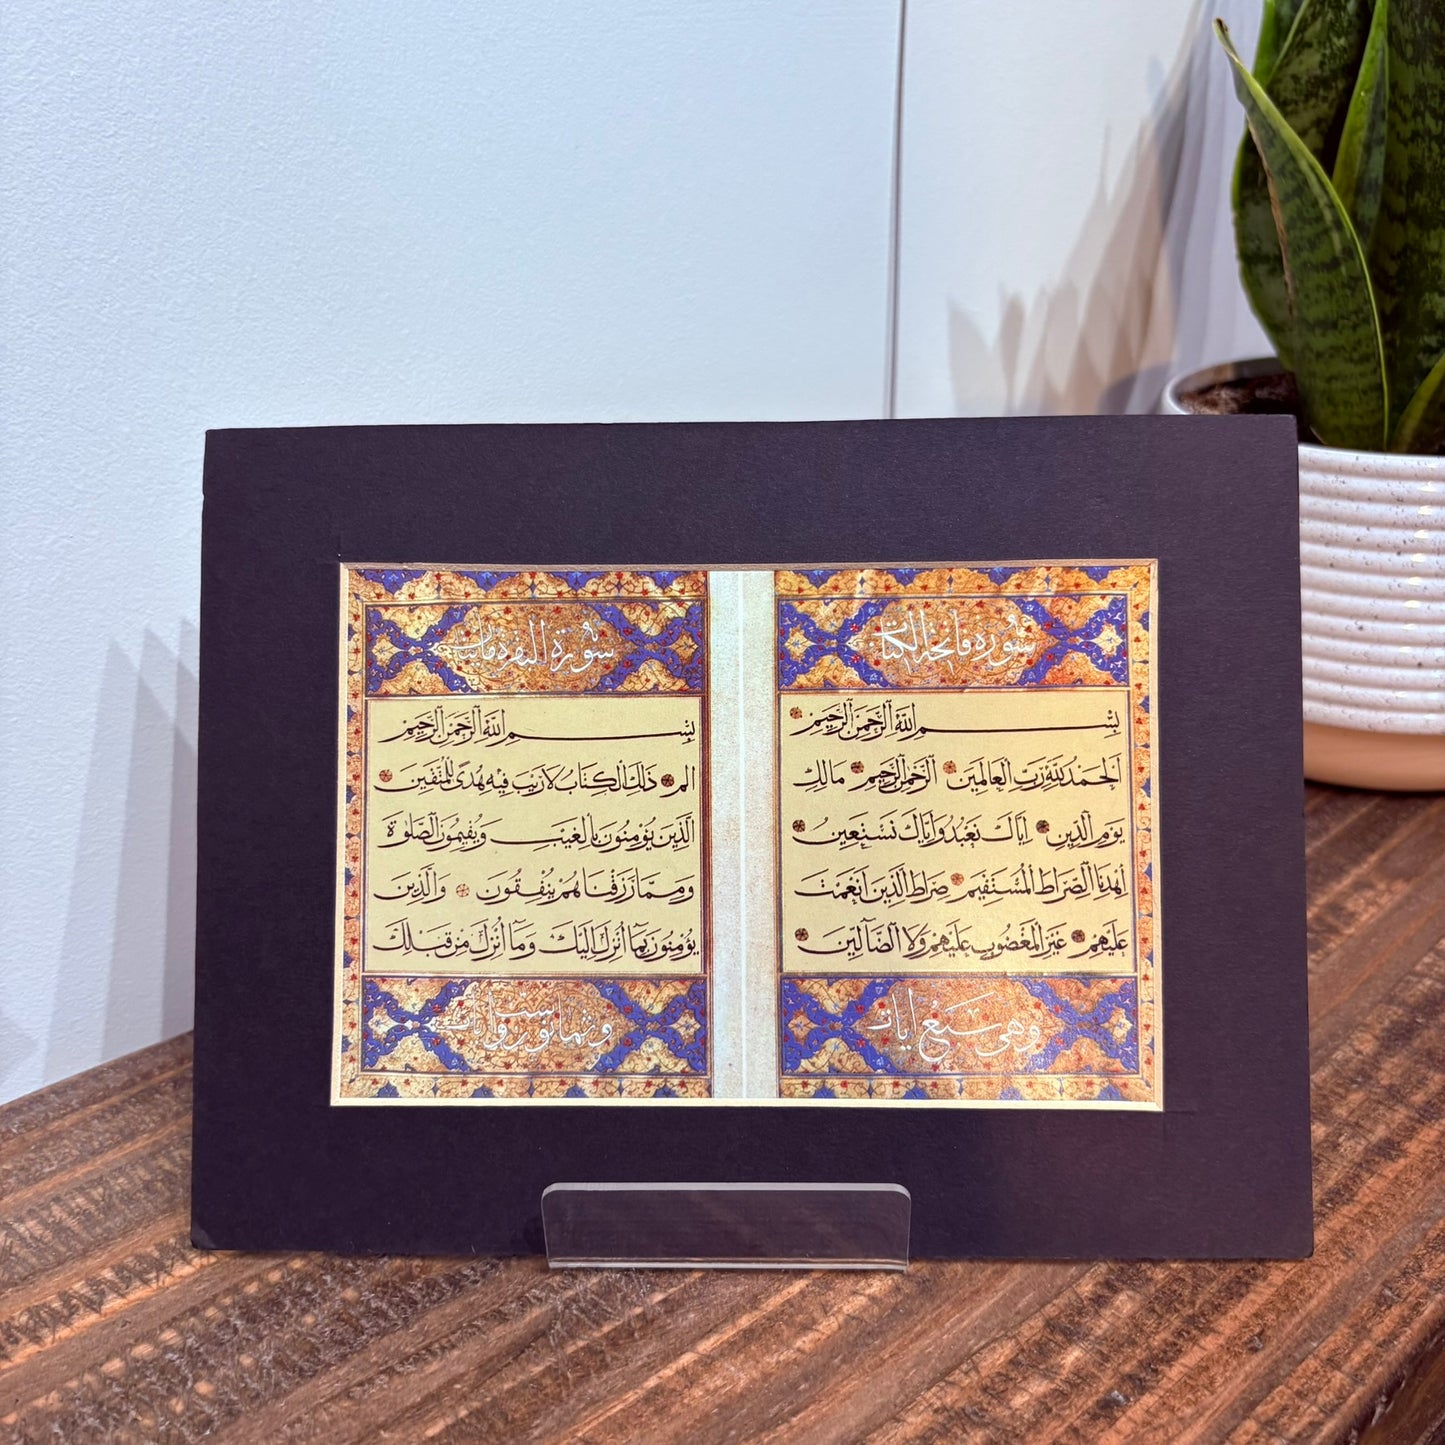 سورة فاتحة الكتاب
بسم الله الرحمن الرحيم
الحمد لله رب العالمين الرحمن الرحيم مالك
يوم الدين اياك نعبد واياك نستعين
اهدنا الصراط المستقيم صراط الذين انعمت
عليهم غير المغضوب عليهم ولا الضآلين
وهي سبع ايات
سورة البقرة مائتان
بسم الله الرحمن الرحيم
الم ذلك الكتاب لا ريب فيه هدى للمتقين
الذين يؤمنون بالغيب ويقيمون الصلوة
ومما رزقناهم ينفقون والذين
يؤمنون بما انزل اليك وما انزل من قبلك
وثمانون وست ايات